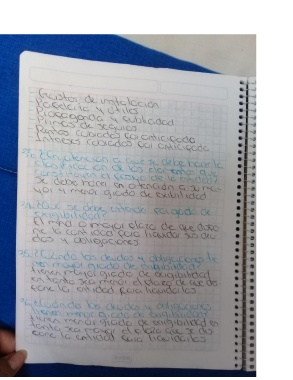 Gastos de instalación
Papelería y útiles
Propaganda y publicidad
Primas de seguros
Rentas cobradas por anticipado
Intereses cobrados por anticipado
atención a que se debe hacer la
de los elementos q
Se debe hacer en atención a su ma-
yor y menor grado de
¿Qué se debe entender por grado de
exigibilidad?
El menor o mayor plazo de que dispo-
ne la entidad para liquidar sus deu-
das y obligaciones
¿Cuándo las deudas y obligaciones tie-
nen mayor grado de exigibilidad?
tienen mayor grado de exigibilidad
en tanto sea menor el plazo de que dis-
pone la entidad para liquidarlos
¿Cuándo las deudas y obligaciones
tienen menor grado de exigibilidad?
tienen menor grado de exigibilidad en
tanto sea mayor el plazo que se dis-
pone la entidad para liquidarlos